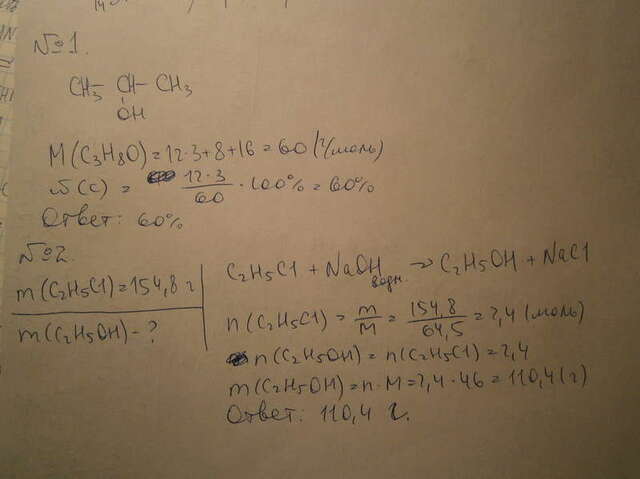 №1.
CH₃ – CH – CH₃
OH
M(C₃H₈O) = 12·3+8+16 = 60 (г/моль)
ω(C) = 12·3/60 · 100% = 60%
Ответ: 60%
№2.
m(C₂H₅Cl) = 154,8 г
m(C₂H₅OH) – ?
C₂H₅Cl + NaOH водн. → C₂H₅OH + NaCl
n(C₂H₅Cl) = m/M = 154,8/64,5 = 2,4 (моль)
n(C₂H₅OH) = n(C₂H₅Cl) = 2,4
m(C₂H₅OH) = n·M = 2,4 · 46 = 110,4 (г)
Ответ: 110,4 г.